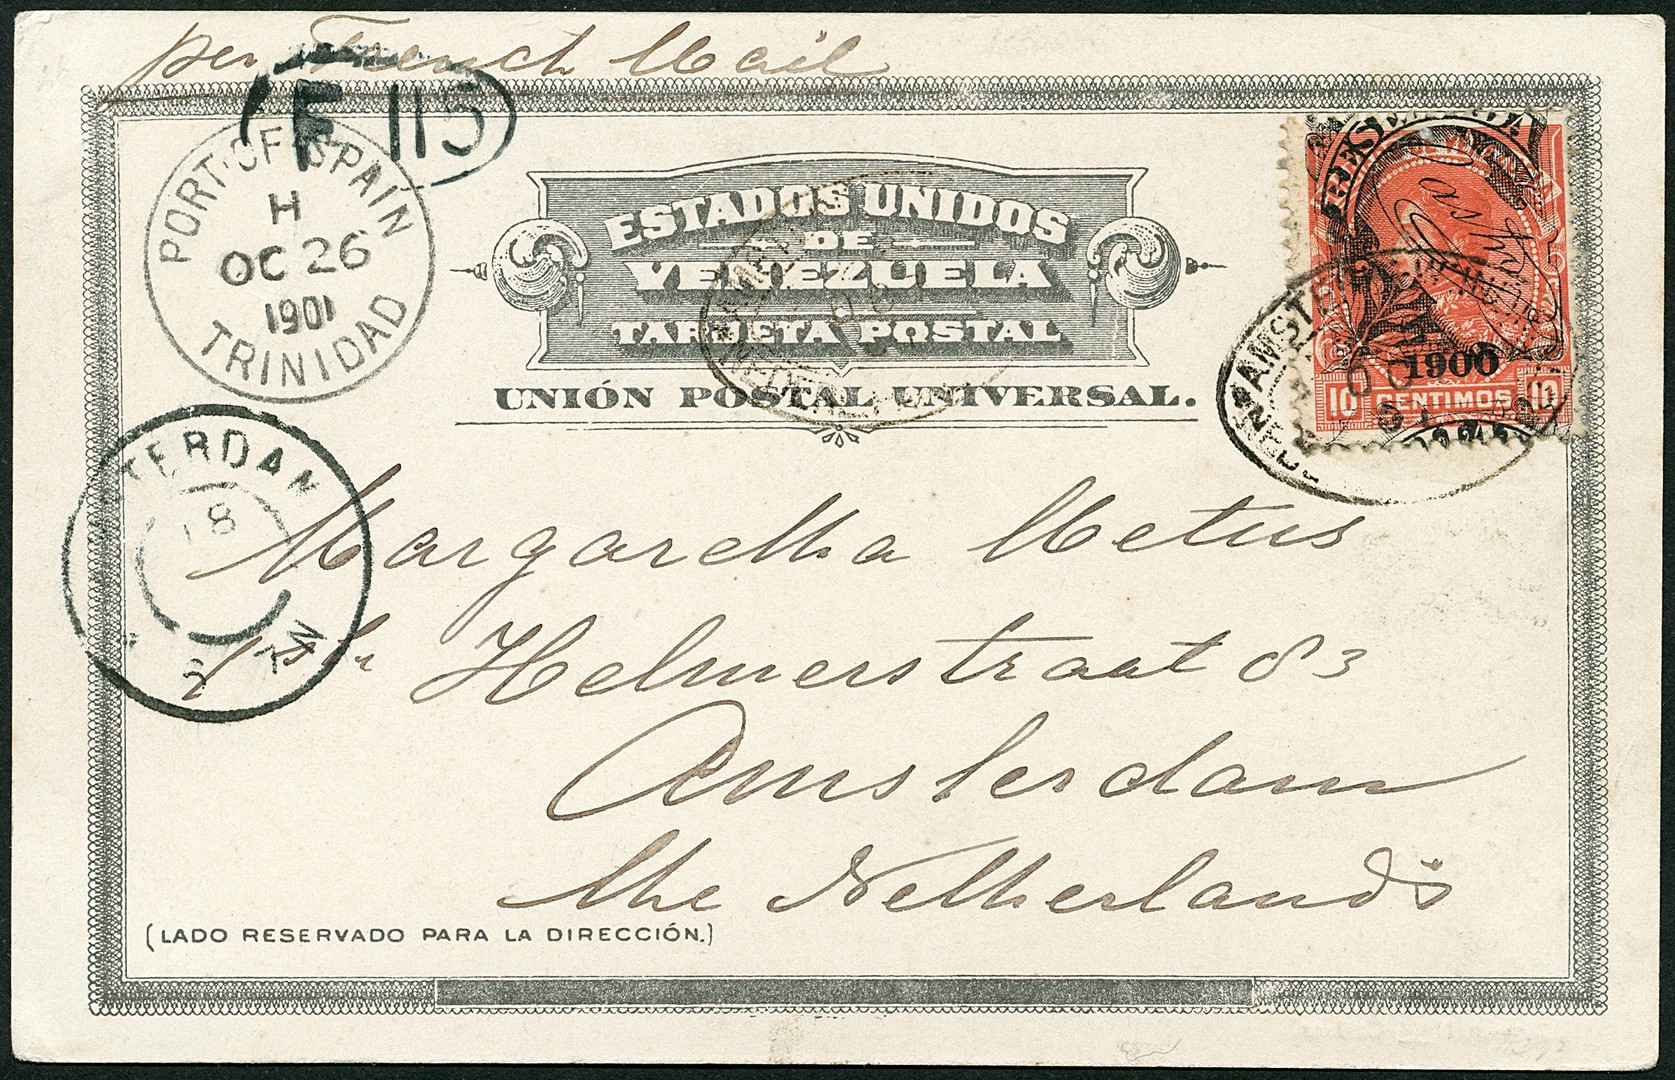 per French Mail
F 115
PORT-OF-SPAIN
H
OC 26
1901
TRINIDAD
ESTADOS UNIDOS
DE
VENEZUELA
TARJETA POSTAL
UNIÓN POSTAL UNIVERSAL.
RESELLADA
1900
10 CENTIMOS 10
AMST
TERDAM
18
Margaretha Metus
1ste Helmerstraat 83
Amsterdam
The Netherlands
(LADO RESERVADO PARA LA DIRECCIÓN.)